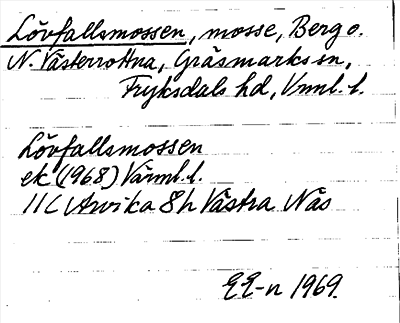 Lövfallsmossen, mosse, Berg o.
N. Västerrottna, Gräsmarks sn,
Fryksdals hd, Vrml. l.
Lövfallsmossen
ek (1968) Värml. l.
11C Arvika 8h Västra Näs
EE-n 1969.